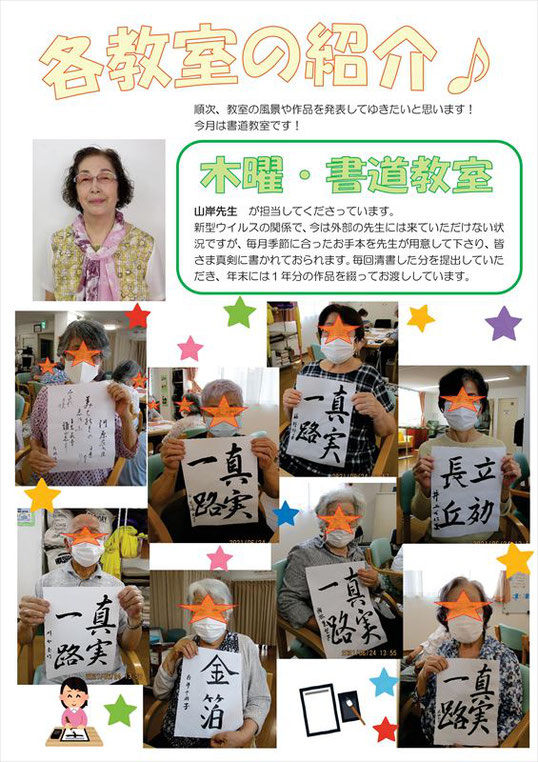 各教室の紹介♪
順次、教室の風景や作品を発表してゆきたいと思います！
今月は書道教室です！
木曜・書道教室
山岸先生　が担当してくださっています。
新型ウイルスの関係で、今は外部の先生には来ていただけない状
況ですが、毎月季節に合ったお手本を先生が用意して下さり、皆
さま真剣に書かれておられます。毎回清書した分を提出していた
だき、年末には１年分の作品を綴ってお渡ししています。
真実
一路
真実
一路
2021/06/24
立効
長丘
2021/06/24
真実
一路
金箔
真実
一路
2021/06/24 13:55
真実
一路